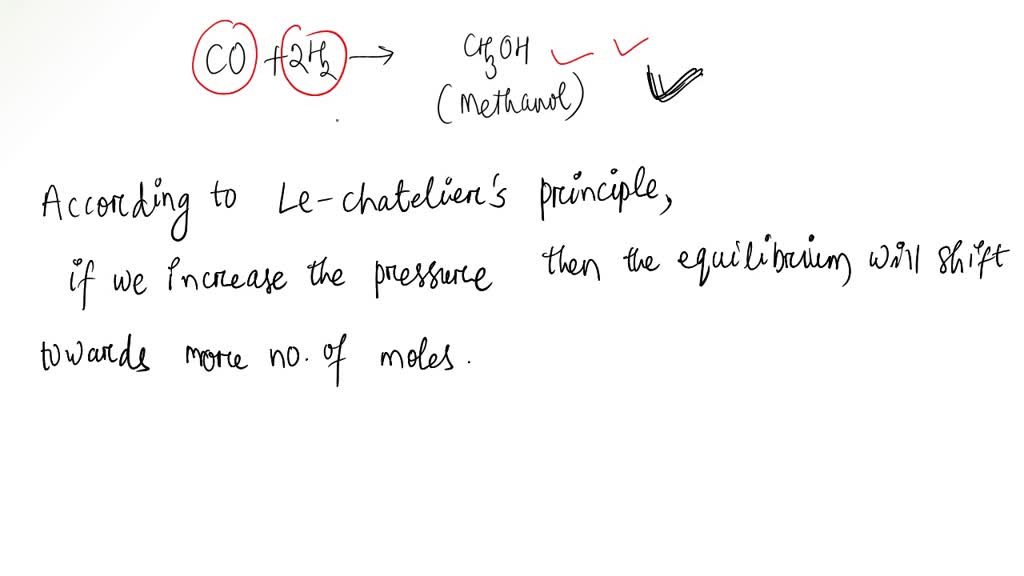 CO + 2H₂ → CH₃OH
(Methanol)
According to Le-chatelier's principle,
if we increase the pressure then the equilibrium will shift
towards more no. of moles.